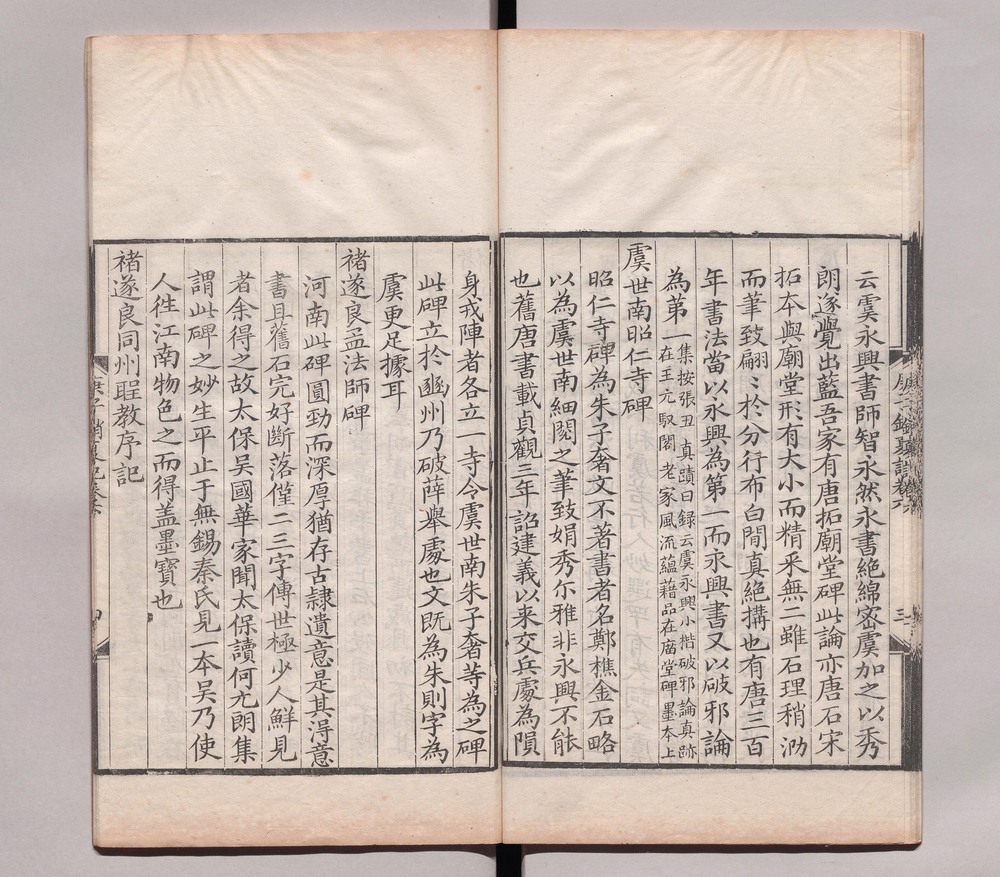 云虞永興書師智永然永書絶綿密虞加之以秀
朗遂覺出藍吾家有唐拓廟堂碑此論亦唐石宋
拓本與廟堂形有大小而精采無二雖石理稍泐
而筆致翩〻於分行布白間真絶搆也有唐三百
年書法當以永興為第一而永興書又以破邪論
為第一
集按張丑真蹟日録云虞永興小楷破邪論真跡
在王元馭閣老家風流藴藉品在廟堂碑墨本上
虞世南昭仁寺碑
昭仁寺碑為朱子奢文不著書者名鄭樵金石略
以為虞世南細閱之筆致娟秀尔雅非永興不能
也舊唐書載貞觀三年詔建義以来交兵處為隕
身戎陣者各立一寺令虞世南朱子奢等為之碑
此碑立於豳州乃破薛舉處也文既為朱則字為
虞更足據耳
褚遂良孟法師碑
河南此碑圓勁而深厚猶存古隸遺意是其淂意
書且舊石完好斷落僅二三字傳世極少人鮮見
者余得之故太保吳國華家聞太保讀何尤朗集
謂此碑之妙生平止于無錫秦氏見一本吳乃使
人徃江南物色之而得盖墨寶也
褚遂良同州聖教序記
庚子銷夏記卷六
四